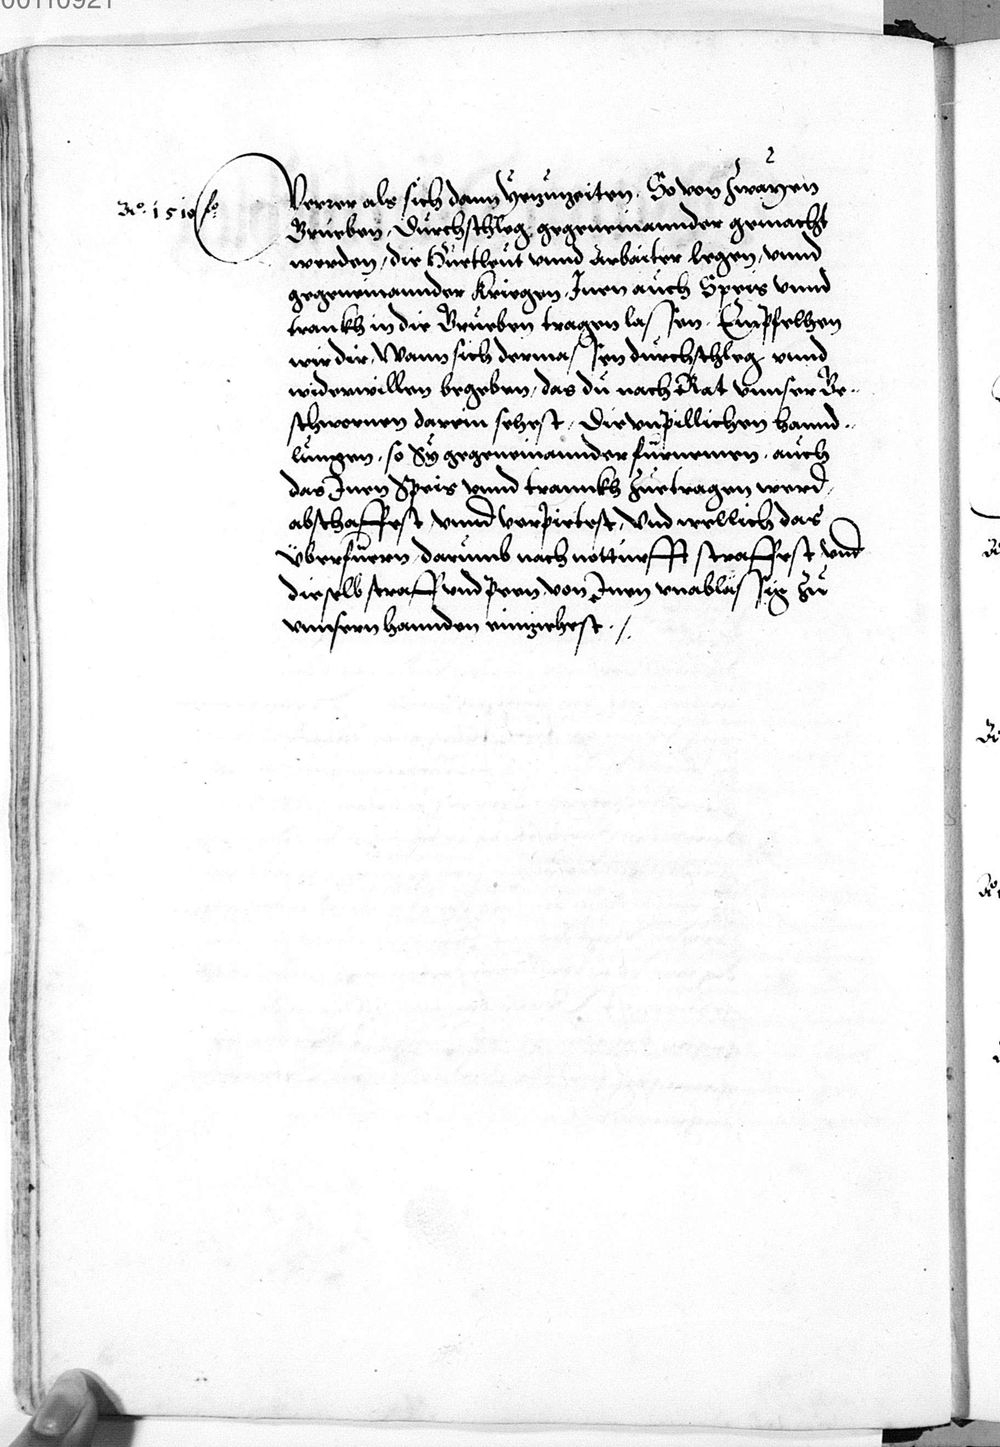 00110921
Ao. 1510 fo.
Verrer als sich dann yezunzeiten. So von zwayen
Grueben, Durchschleg gegeneinannder gemacht
werden, die Huetleut vnnd Arbaiter legen, vnnd
gegeneinannder Kriegen, Inen auch Speis vnnd
trankh in die Grueben tragen lassen. Empfelhen
wir dir, Wann sich dermassen durchschleg vnnd
widerwillen begeben, das du nach Rat vnnser Ge-
schwornen darein sehest, Die vnpillichen hannd-
lungen, so Sy gegeneinannder fürnemen, auch
das Inen Speis vnnd trannkh zuetragen werd,
abschaffest, vnnd verpietest, Vnd wellich das
überfüern, darumb nach notturfft straffest vnd
dieselb straff vnd peen von Inen vnablässig zu
vnnsern hannden einziehest ./.